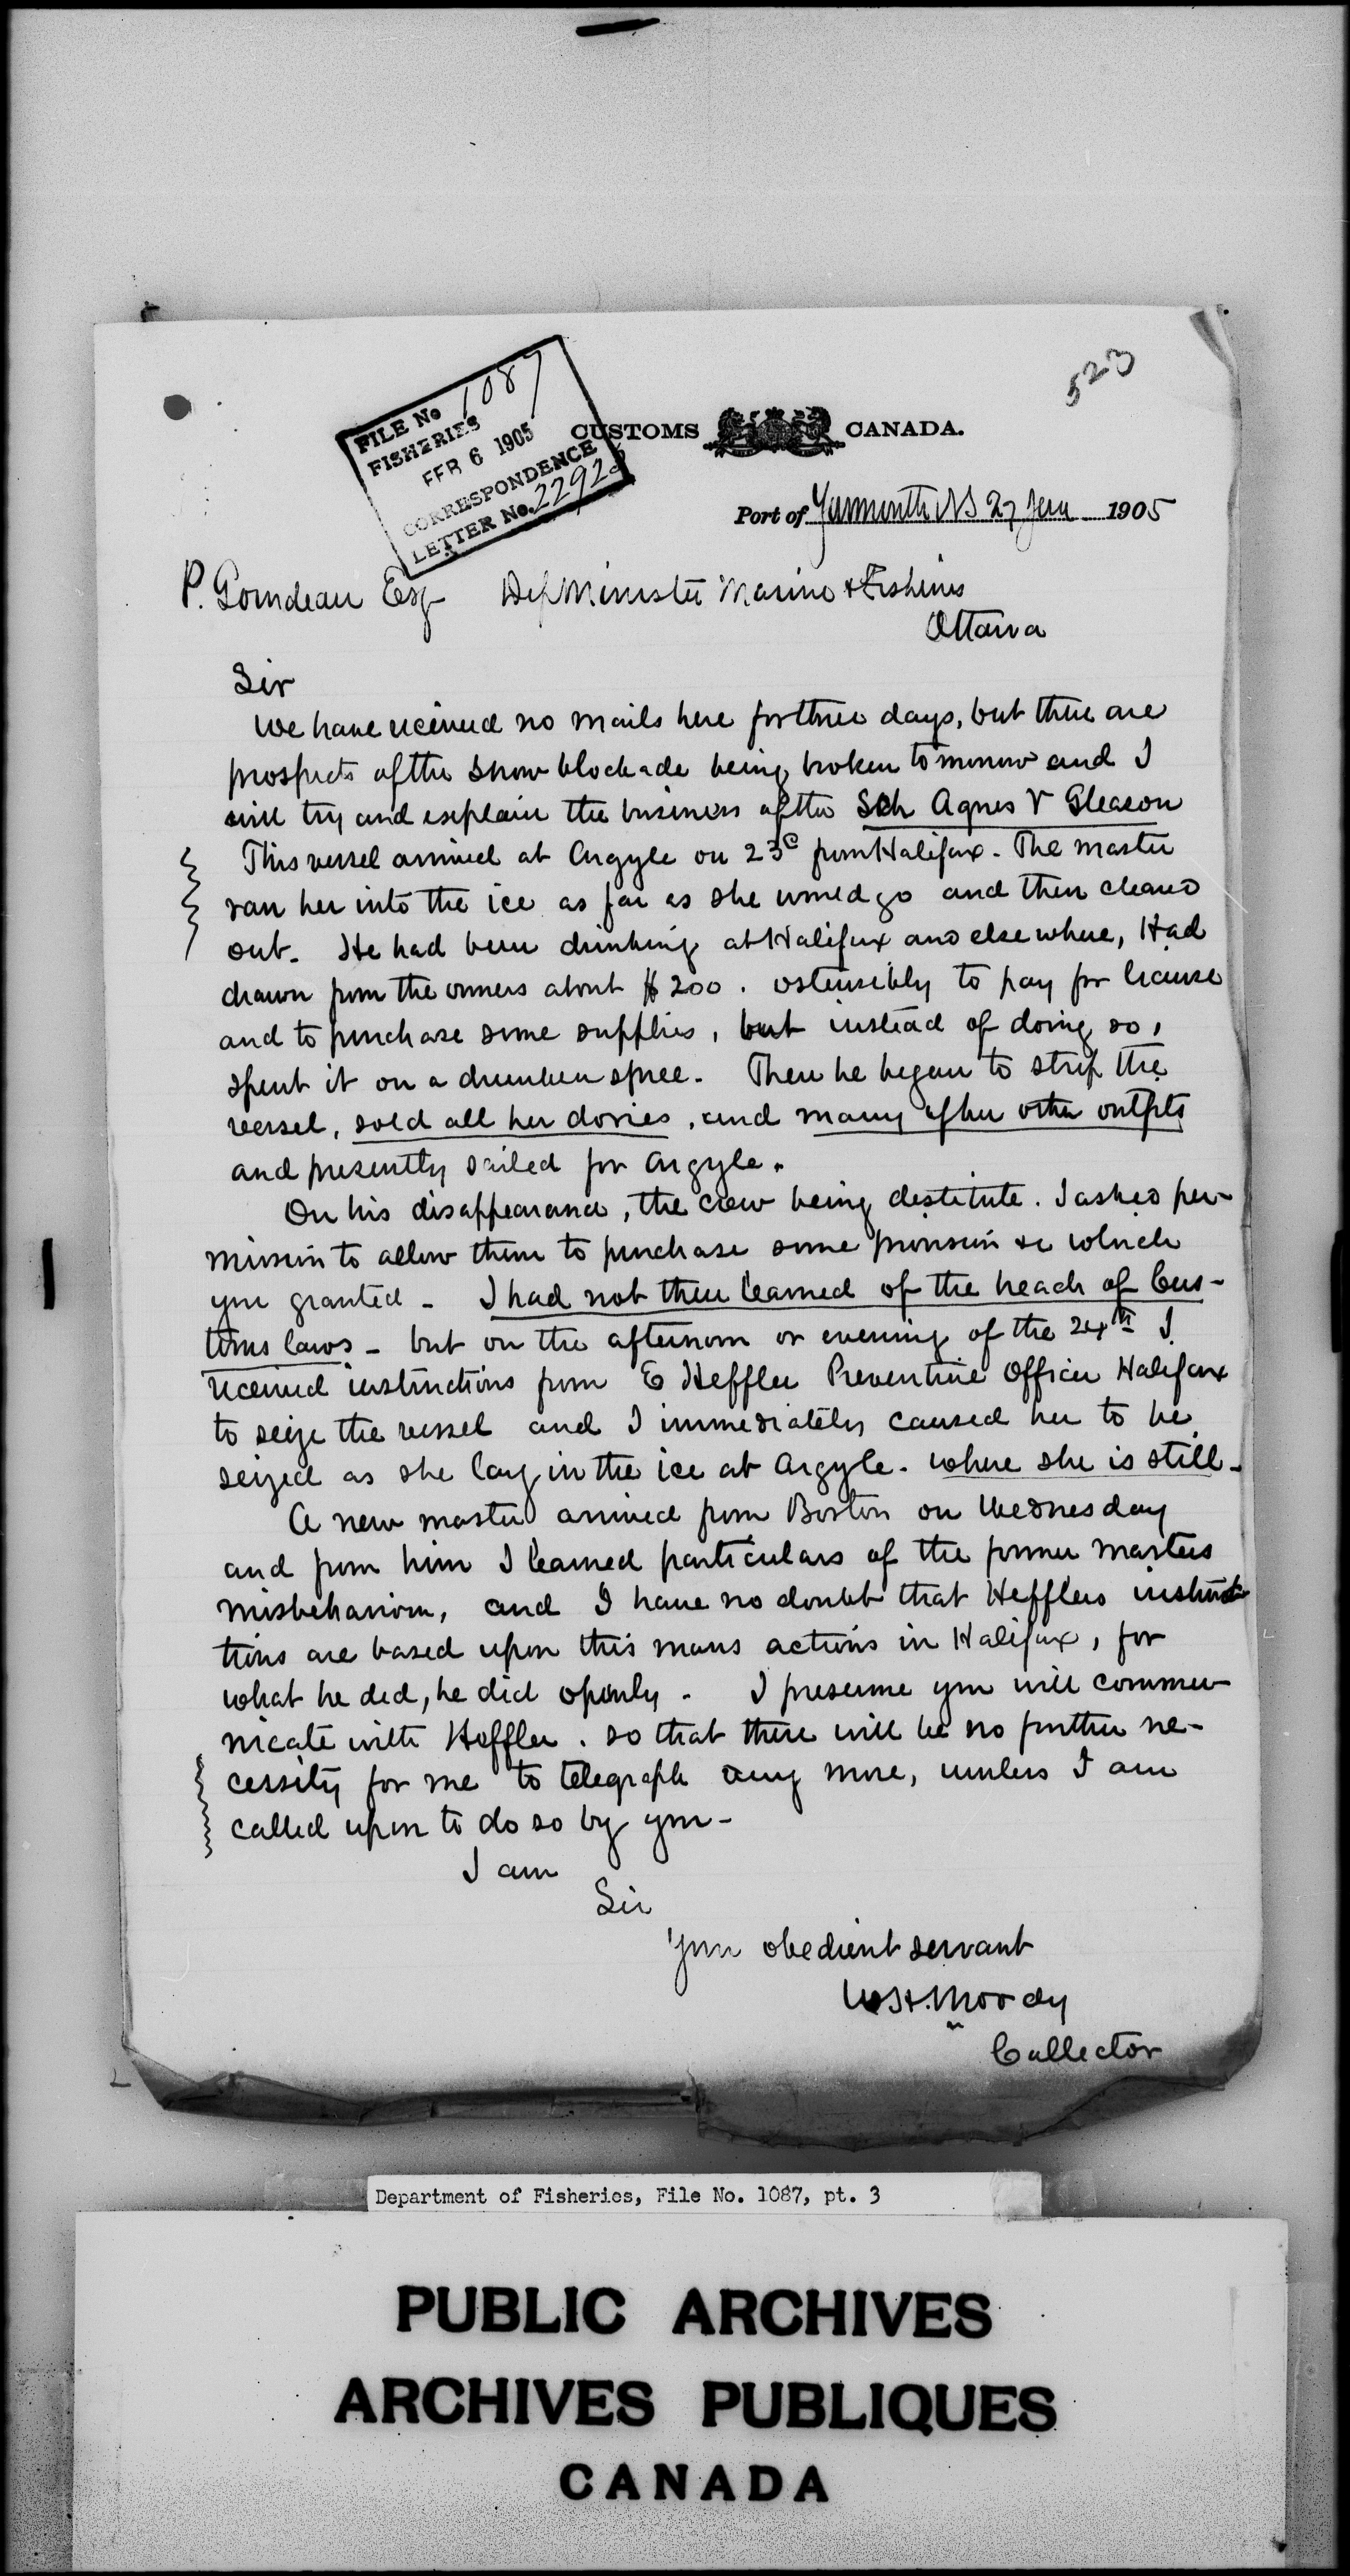 523
FILE No 1087
FISHERIES
FEB 6 1905
CORRESPONDENCE
LETTER No. 2292
CUSTOMS CANADA.
Port of Yarmouth NS 27 Jan 1905
P. Gourdeau Esq Dep Minister Marine & Fisheries
Ottawa
Sir
We have received no mails here for three days, but there are
prospects of the snow blockade being broken tomorrow and I
will try and explain the business of the Sch Agnes V Gleason
This vessel arrived at Argyle on 23d from Halifax. The master
ran her into the ice as far as she would go and then cleared
out. He had been drinking at Halifax and elsewhere, Had
drawn from the owners about $200. ostensibly to pay for license
and to purchase some supplies, but instead of doing so,
spent it on a drunken spree. Then he began to strip the
vessel, sold all her dories, and many of her other outfits
and presently sailed for Argyle.
On his disappearance, the crew being destitute. I asked per-
mission to allow them to purchase some provisions &c which
you granted - I had not then learned of the breach of Cus-
toms laws - but on the afternoon or evening of the 24th I
received instructions from E Heffler Preventive Officer Halifax
to seize the vessel and I immediately caused her to be
seized as she lay in the ice at Argyle. where she is still -
A new master arrived from Boston on Wednesday
and from him I learned particulars of the former masters
misbehaviour, and I have no doubt that Hefflers instruc
tions are based upon this mans actions in Halifax, for
what he did, he did openly - I presume you will commu-
nicate with Heffler. so that there will be no further ne-
cessity for me to telegraph any more, unless I am
called upon to do so by you -
I am
Sir
Your obedient servant
W H. Moody
Collector
Department of Fisheries, File No. 1087, pt. 3
PUBLIC ARCHIVES
ARCHIVES PUBLIQUES
CANADA